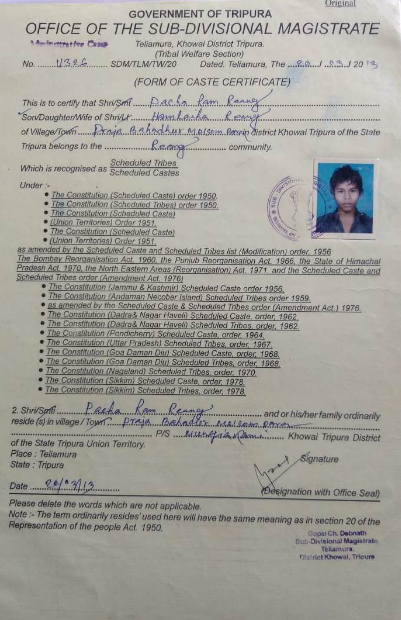 Original
GOVERNMENT OF TRIPURA
OFFICE OF THE SUB-DIVISIONAL MAGISTRATE
Teliamura, Khowai District Tripura.
(Tribal Welfare Section)
No. SDM/TLM/TW/20 Dated. Teliamura, The 20/03/2013
(FORM OF CASTE CERTIFICATE)
This is to certify that Shri/Smt Ram Reang
Son/Daughter/Wife of Shri/Lt Reang
of Village/Town Praja Bahadhur in district Khowai Tripura of the State
Tripura belongs to the Reang community.
Scheduled Tribes
Which is recognised as
Scheduled Castes
Under :-
The Constitution (Scheduled Caste) order 1950.
The Constitution (Scheduled Tribes) order 1950.
The Constitution (Scheduled Caste)
(Union Territories) Order 1951.
The Constitution (Scheduled Caste)
(Union Territories) Order 1951.
as amended by the Scheduled Caste and Scheduled Tribes list (Modification) order. 1956
The Bombay Reorganisation Act. 1960, the Punjub Reorganisation Act, 1966, the State of Himachal
Pradesh Act, 1970, the North Eastern Areas (Reorganisation) Act. 1971. and the Scheduled Caste and
Scheduled Tribes order (Amendment Act. 1976)
The Constitution (Jammu & Kashmir) Scheduled Caste order 1956.
The Constitution (Andaman Necobar Island) Scheduled Tribes order 1959.
as amended by the Scheduled Caste & Scheduled Tribes order (Amendment Act.) 1976.
The Constitution (Dadra& Nagar Haveli) Scheduled Caste, order, 1962.
The Constitution (Dadra & Nagar Haveli) Scheduled Tribes, order, 1962.
The Constitution (Pondicherry) Scheduled Caste, order, 1964.
The Constitution (Uttar Pradesh) Scheduled Tribes, order, 1967.
The Constitution (Goa Daman Diu) Scheduled Caste, order, 1968.
The Constitution (Goa Daman Diu) Scheduled Tribes, order, 1968.
The Constitution (Nagaland) Scheduled Tribes, order, 1970.
The Constitution (Sikkim) Scheduled Caste, order, 1978.
The Constitution (Sikkim) Scheduled Tribes, order, 1978.
2. Shri/Smt Ram Reang and or his/her family ordinarily
reside(s) in village / Town Praja Bahadur
P/S Khowai Tripura District
of the State Tripura Union Territory.
Place : Teliamura
Signature
State : Tripura
Date 20/03/13
(Designation with Office Seal)
Please delete the words which are not applicable.
Note :- The term ordinarily resides' used here will have the same meaning as in section 20 of the
Representation of the people Act. 1950.
Gopal Ch. Debnath
Sub-Divisional Magistrate
Teliamura,
District Khowai, Tripura